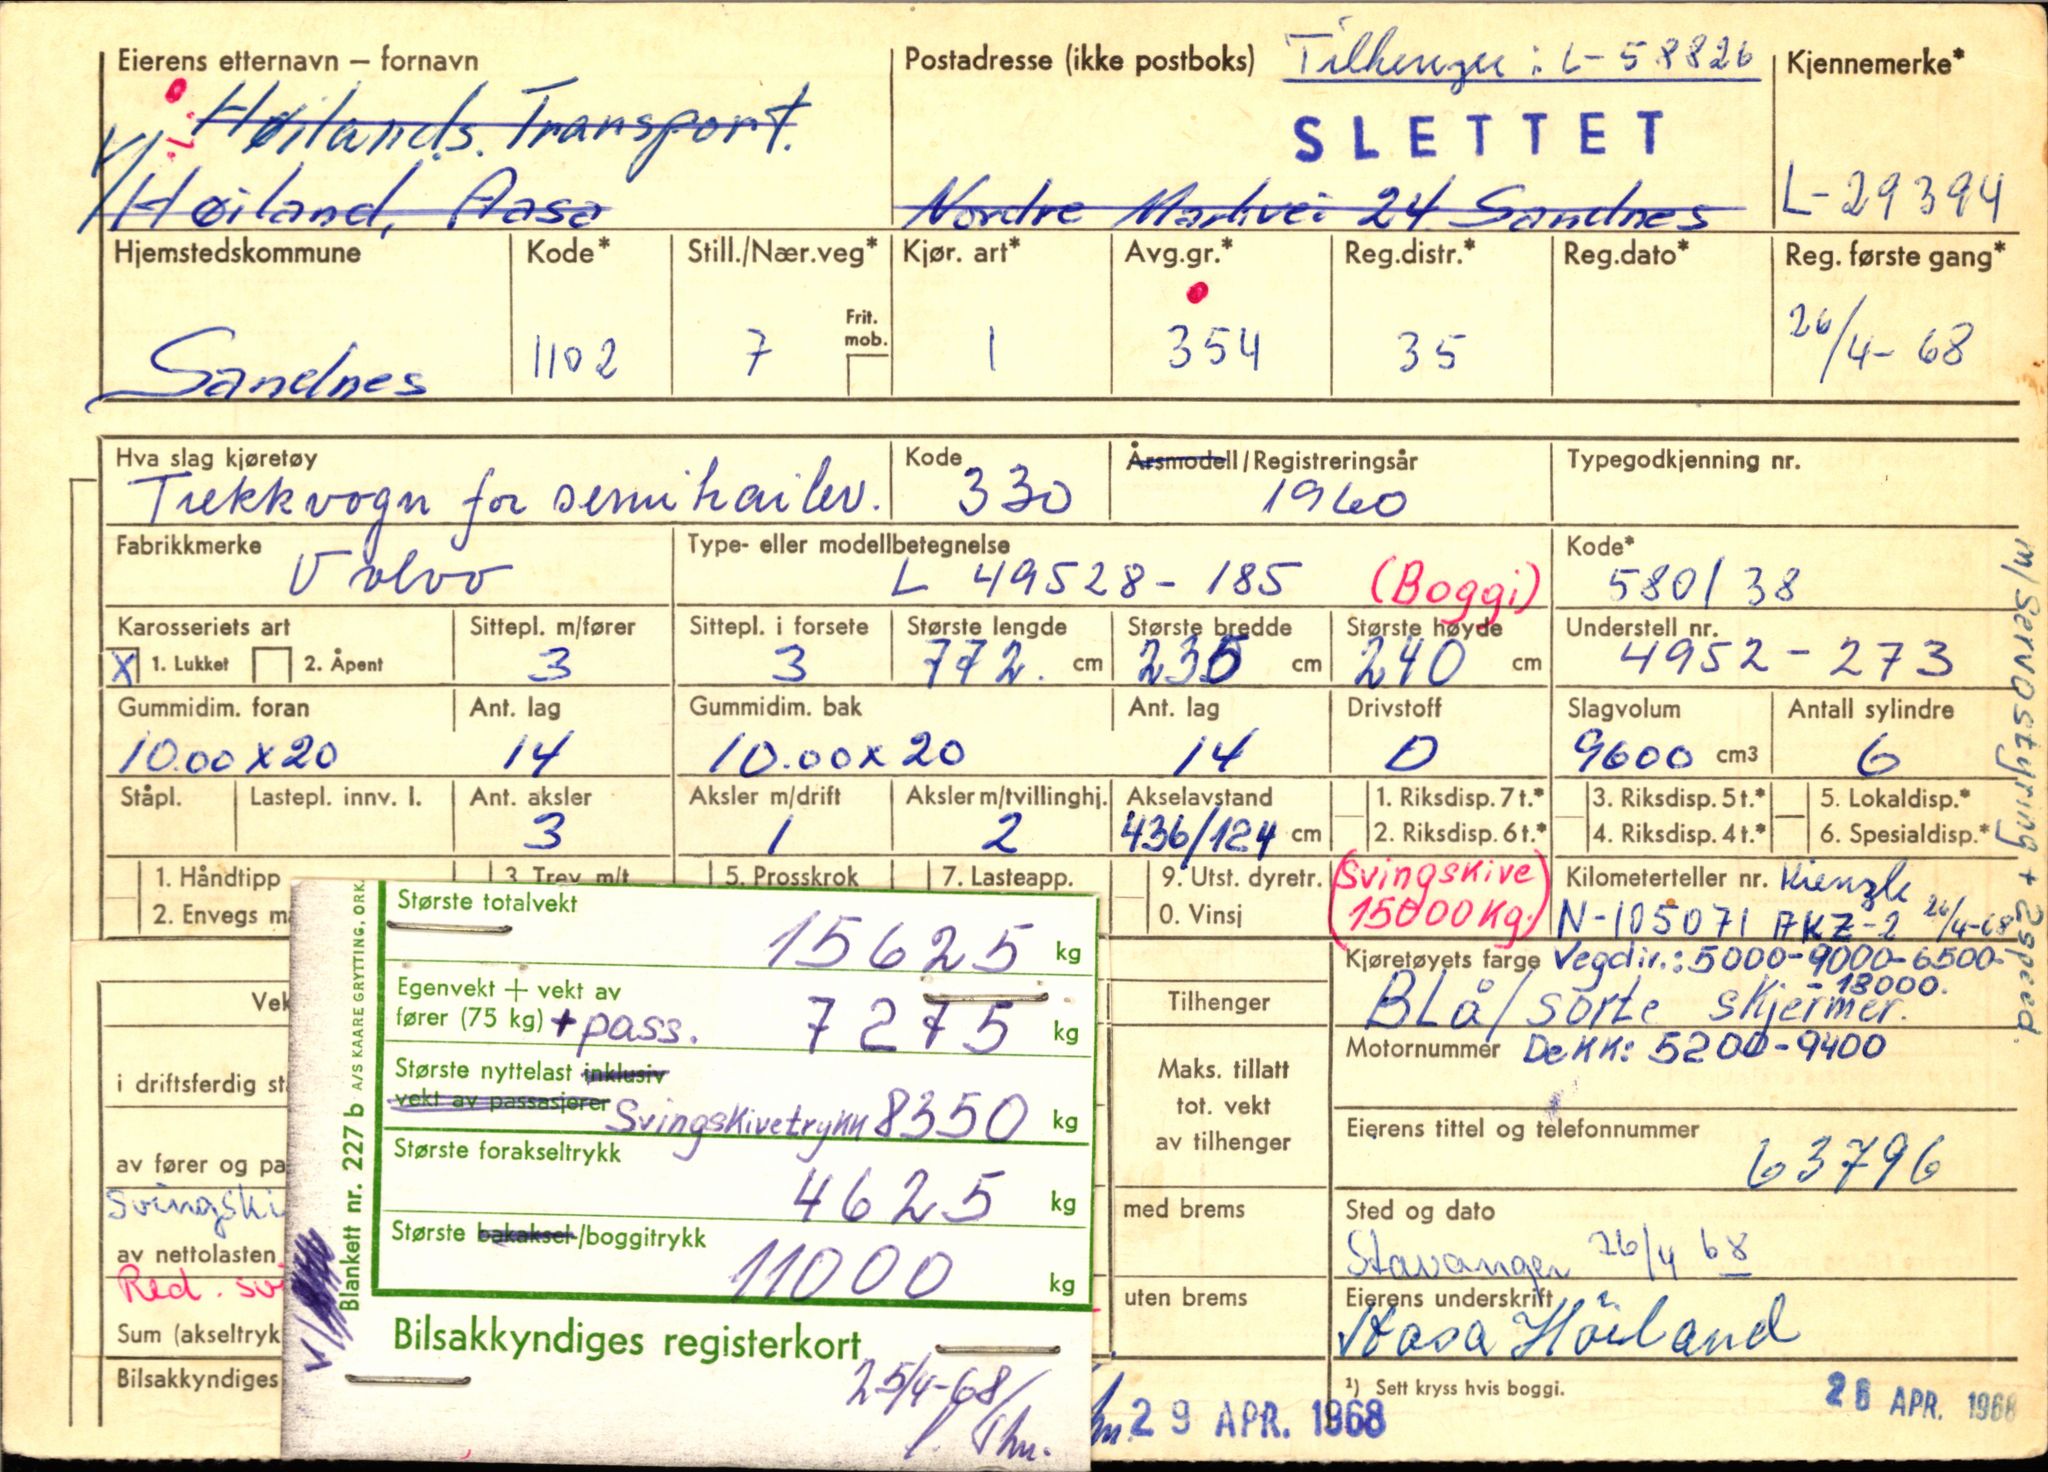 Eierens etternavn – fornavn
Postadresse (ikke postboks)
Tilhenger : L-58826
Kjennemerke*
Høilands. Transport.
SLETTET
V/
Høiland, Aasa
Nordre Markvei 24. Sandnes
L-29394
Hjemstedskommune
Kode*
Still./Nær.veg*
Kjør. art*
Avg.gr.*
Reg.distr.*
Reg.dato*
Reg. første gang*
Frit.
mob.
Sandnes
1102
7
1
354
35
26/4-68
Hva slag kjøretøy
Kode
Årsmodell/Registreringsår
Typegodkjenning nr.
Trekkvogn for semitrailer.
330
1960
Fabrikkmerke
Type- eller modellbetegnelse
Kode*
Volvo
L 49528-185
(Boggi)
580/38
Karosseriets art
Sittepl. m/fører
Sittepl. i forsete
Største lengde
Største bredde
Største høyde
Understell nr.
X
1. Lukket
2. Åpent
3
3
772. cm
235 cm
240 cm
4952-273
Gummidim. foran
Ant. lag
Gummidim. bak
Ant. lag
Drivstoff
Slagvolum
Antall sylindre
10.00x20
14
10.00x20
14
D
9600 cm3
6
Ståpl.
Lastepl. innv. l.
Ant. aksler
Aksler m/drift
Aksler m/tvillinghj.
Akselavstand
1. Riksdisp. 7 t.*
3. Riksdisp. 5 t.*
5. Lokaldisp.*
3
1
2
436/124 cm
2. Riksdisp. 6 t.*
4. Riksdisp. 4 t.*
6. Spesialdisp.*
m/servostyring + 2speed.
1. Håndtipp
3. Trev. m/t
5. Prosskrok
7. Lasteapp.
9. Utst. dyretr.
(Svingskive
Kilometerteller nr. Kienzle
2. Envegs
0. Vinsj
15000Kg.)
N-105071 AKZ-2 26/4-68
Kjøretøyets farge Vegdir.: 5000-9000-6500-
-18000.
Blå/sorte skjermer.
Motornummer Dekk: 5200-9400
Tilhenger
Maks. tillatt
tot. vekt
av tilhenger
med brems
uten brems
Eierens tittel og telefonnummer
63796
Sted og dato
Stavanger 26/4 68
Eierens underskrift
Aasa Høiland
¹) Sett kryss hvis boggi.
26 APR. 1968
29 APR. 1968
Vek
i driftsferdig st
av fører og pa
Svingski
av nettolasten
Red. svi
Sum (akseltryk
Bilsakkyndiges
Blankett nr. 227 b A/S KAARE GRYTTING, ORK.
V/
Største totalvekt
15625 kg
Egenvekt + vekt av
fører (75 kg) + pass. 7275 kg
Største nyttelast inklusiv
vekt av passasjerer Svingskivetrykk 8350 kg
Største forakseltrykk
4625 kg
Største bakaksel-/boggitrykk
11000 kg
Bilsakkyndiges registerkort
25/4-68/